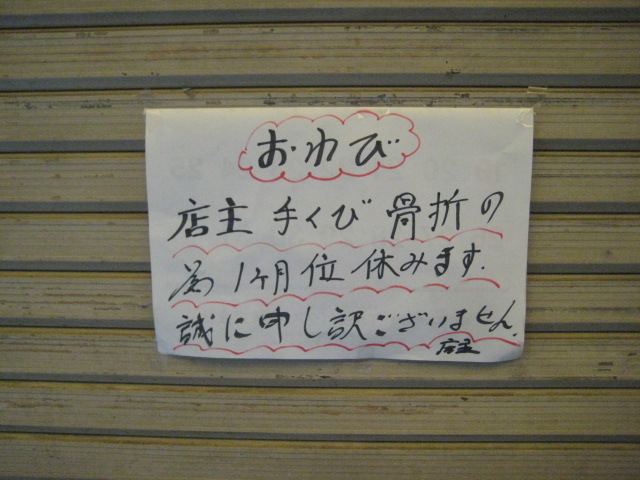 おわび
店主 手くび 骨折の
為 1ヶ月位 休みます.
誠に申し訳ございません.
店主